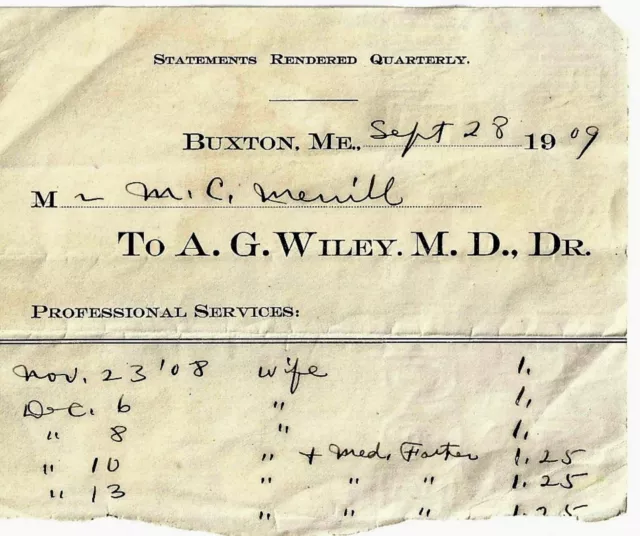 STATEMENTS RENDERED QUARTERLY.
BUXTON, ME., Sept 28 1909
Mr M. C. Merrill
TO A. G. WILEY. M. D., DR.
PROFESSIONAL SERVICES:
Nov. 23 '08 wife 1,
Dec. 6 " 1,
" 8 " 1,
" 10 " + Med, Father 1.25
" 13 " " " 1.25
" " " 1.25